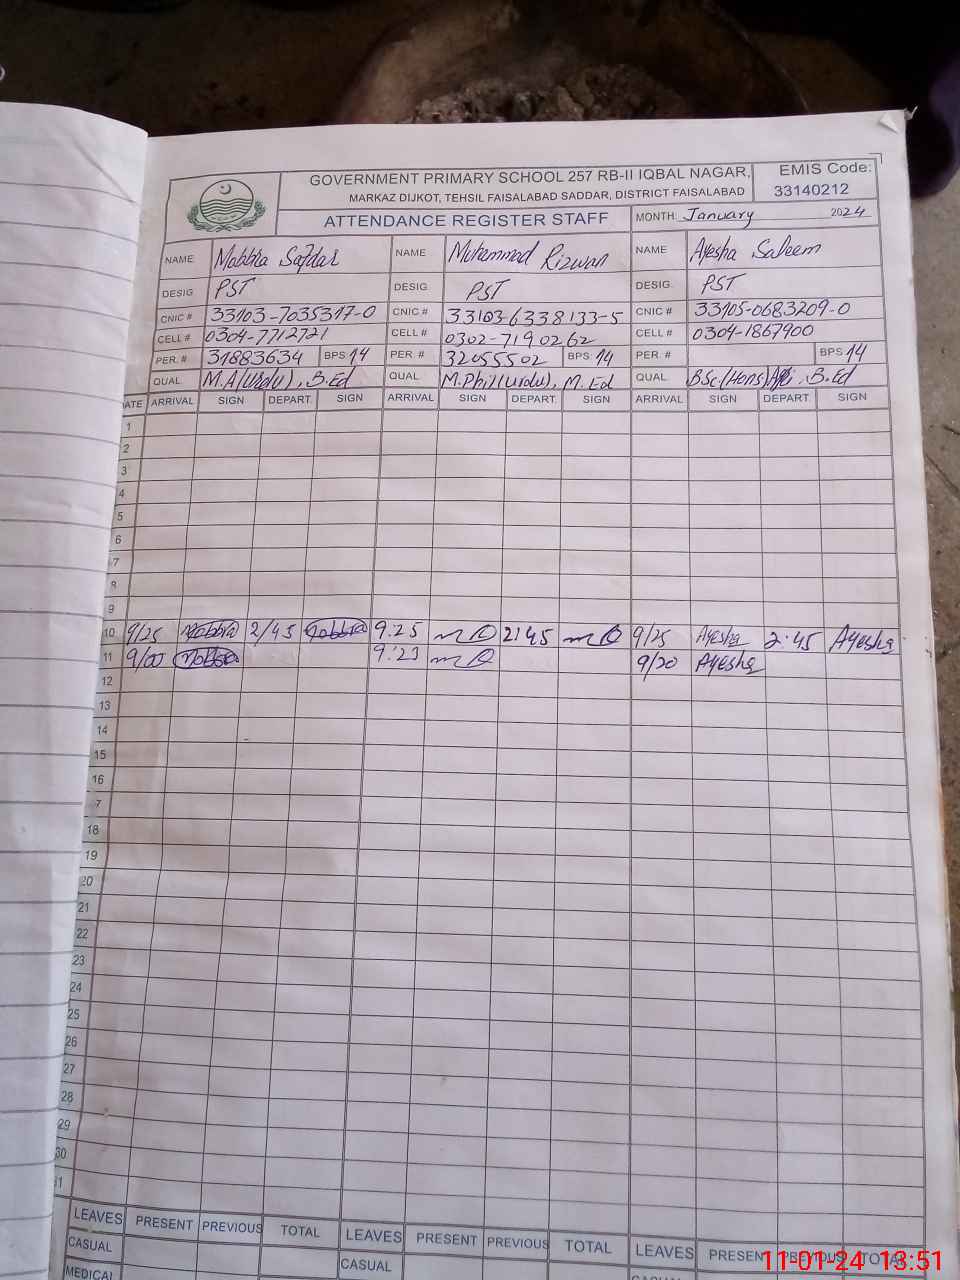 GOVERNMENT PRIMARY SCHOOL 257 RB-II IQBAL NAGAR, EMIS Code:
MARKAZ DIJKOT, TEHSIL FAISALABAD SADDAR, DISTRICT FAISALABAD 33140212
ATTENDANCE REGISTER STAFF MONTH: January 2024
NAME Mobbla Safdar NAME Muhammad Rizwan NAME Ayesha Saleem
DESIG PST DESIG. PST DESIG. PST
CNIC # 33103-7035317-0 CNIC # 33103-6338133-5 CNIC # 33105-0683209-0
CELL # 0304-7712721 CELL # 0302-7190262 CELL # 0304-1867900
PER. # 31883634 BPS 14 PER. # 32055502 BPS 14 PER. # BPS 14
QUAL M.A(urdu), B.Ed QUAL M.Phil(urdu), M.Ed QUAL BSc(Hons) B.Ed
DATE ARRIVAL SIGN DEPART. SIGN ARRIVAL SIGN DEPART. SIGN ARRIVAL SIGN DEPART. SIGN
1
2
3
4
5
6
7
8
9
10 9/25 2/45 9:25 2:45 9/25 Ayesha 2:45 Ayesha
11 9/00 9:23 9/20 Ayesha
12
13
14
15
16
7
18
19
20
21
22
23
24
25
26
27
28
29
30
31
LEAVES PRESENT PREVIOUS TOTAL LEAVES PRESENT PREVIOUS TOTAL LEAVES PRESENT PREVIOUS TOTAL
CASUAL CASUAL
MEDICAL
11-01-24 13:51